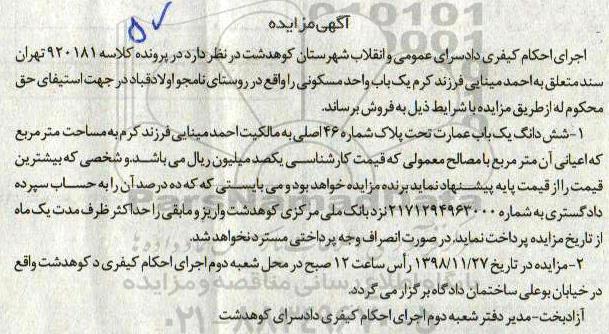 آگهی مزایده
اجرای احکام کیفری دادسرای عمومی و انقلاب شهرستان کوهدشت در نظر دارد در پرونده کلاسه ۹۲۰۱۸۱ تهران
سند متعلق به احمد مینایی فرزند کرم یک باب واحد مسکونی را واقع در روستای نامجو اولادقباد در جهت استیفای حق
محکوم له از طریق مزایده با شرایط ذیل به فروش برساند.
۱-شش دانگ یک باب عمارت تحت پلاک شماره ۴۶ اصلی به مالکیت احمد مینایی فرزند کرم به مساحت متر مربع
که اعیانی آن متر مربع با مصالح معمولی که قیمت کارشناسی یکصد میلیون ریال می باشد.و شخصی که بیشترین
قیمت را از قیمت پایه پیشنهاد نماید برنده مزایده خواهد بود و می بایستی که که ده درصد آن را به حساب سپرده
دادگستری به شماره ۲۱۷۱۲۹۴۹۶۳۰۰۰ نزد بانک ملی مرکزی کوهدشت واریز و مابقی را حداکثر ظرف مدت یک ماه
از تاریخ مزایده پرداخت نماید. در صورت انصراف وجه پرداختی مسترد نخواهد شد.
۲-مزایده در تاریخ ۱۳۹۸/۱۱/۲۷ رأس ساعت ۱۲ صبح در محل شعبه دوم اجرای احکام کیفری د کوهدشت واقع
در خیابان بوعلی ساختمان دادگاه برگزار می گردد.
آزادبخت-مدیر دفتر شعبه دوم اجرای احکام کیفری دادسرای کوهدشت